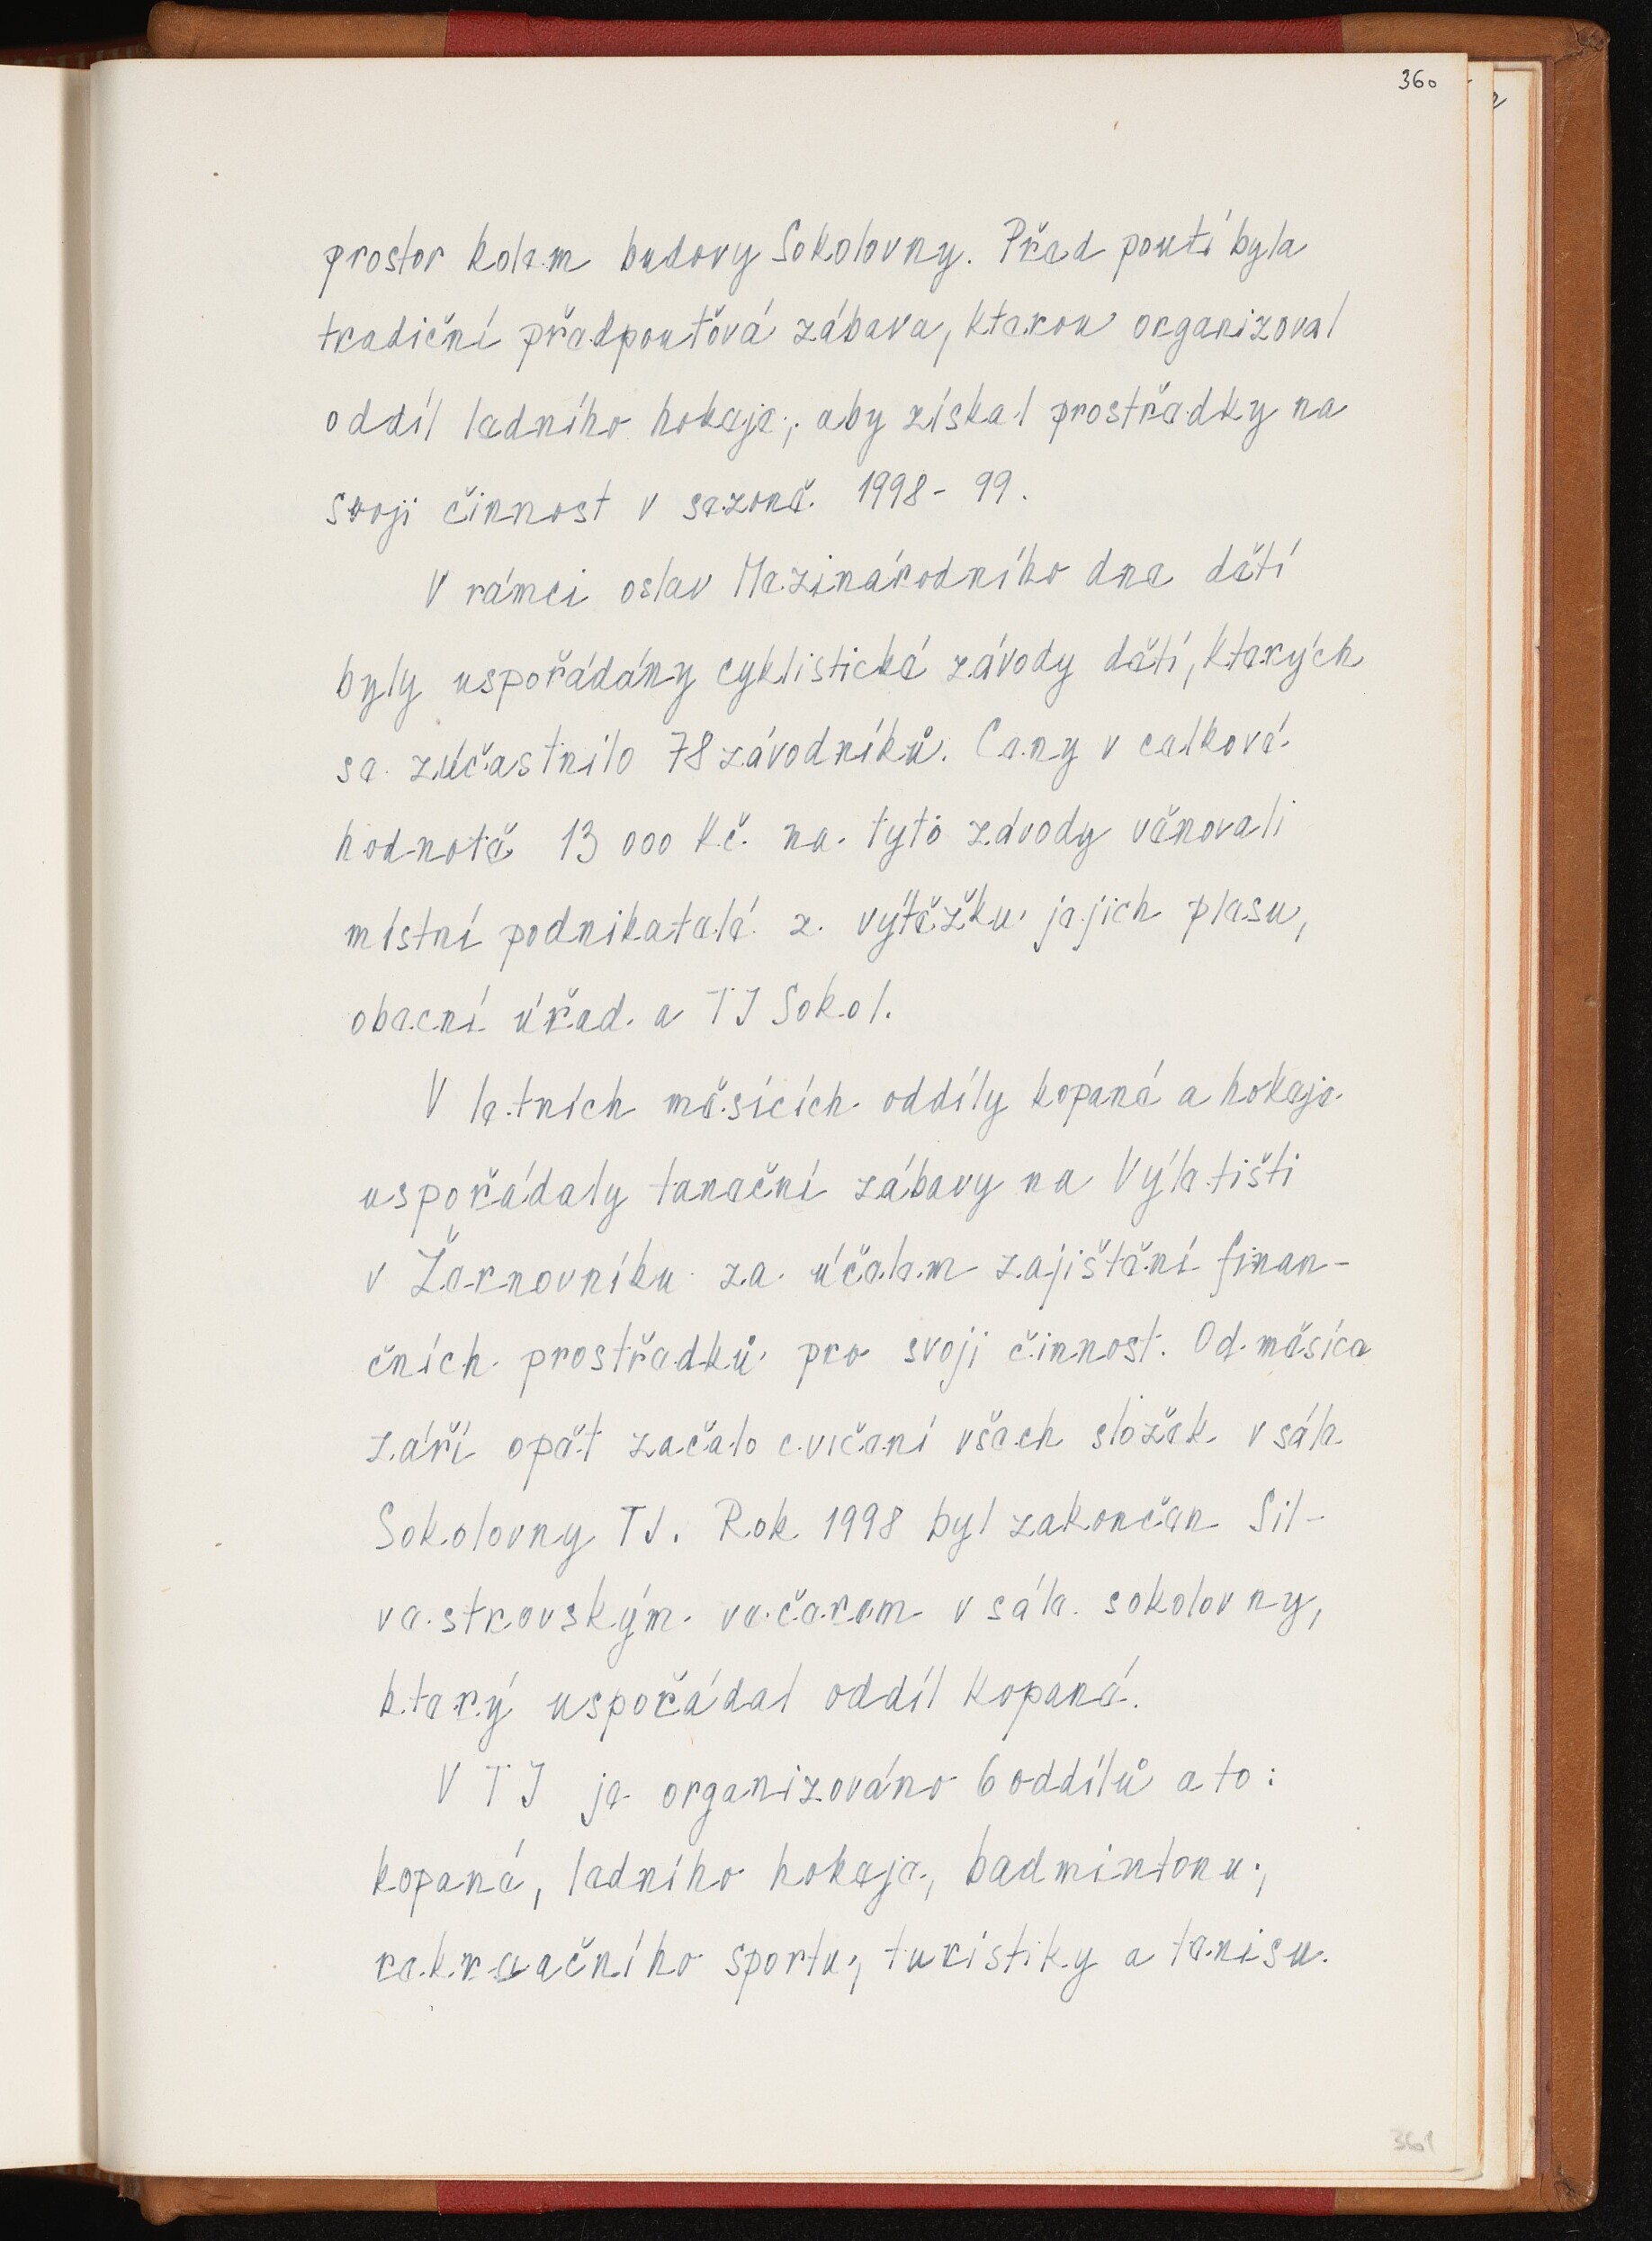 360
prostor kolem budovy Sokolovny. Před poutí byla
tradiční předpouťová zábava, kterou organizoval
oddíl ledního hokeje, aby získal prostředky na
svoji činnost v sezoně 1998 - 99.
V rámci oslav Mezinárodního dne dětí
byly uspořádány cyklistické závody dětí, kterých
se zúčastnilo 78 závodníků. Ceny v celkové
hodnotě 13 000 Kč na tyto závody věnovali
místní podnikatelé z výtěžku jejich plesu,
obecní úřad a TJ Sokol.
V letních měsících oddíly kopané a hokeje
uspořádaly taneční zábavy na Výletišti
v Žernovníku za účelem zajištění finan-
čních prostředků pro svoji činnost. Od měsíce
září opět začalo cvičení všech složek v sále
Sokolovny TJ. Rok 1998 byl zakončen Sil-
vestrovským večerem v sále sokolovny,
který uspořádal oddíl kopané.
V TJ je organizováno 6 oddílů a to:
kopané, ledního hokeje, badmintonu,
rekreačního sportu, turistiky a tenisu.
361